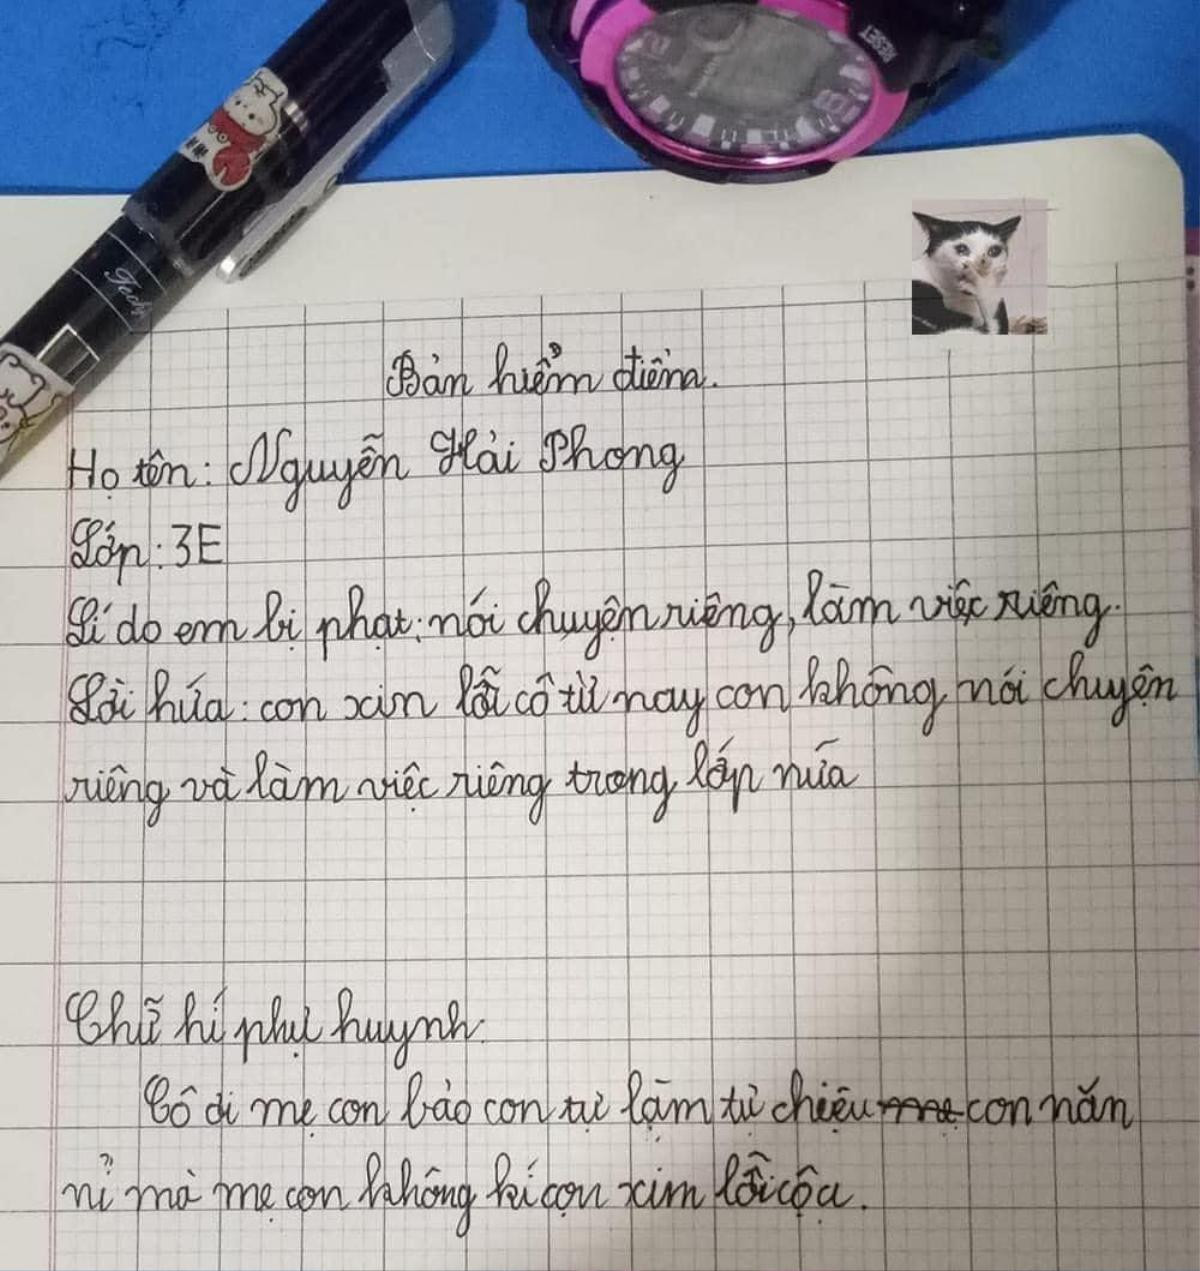 RESET
Tech
Bản hiểm điểm.
Họ tên: Nguyễn Hải Phong
Lớp: 3E
Lí do em bị phạt: nói chuyện riêng, làm việc riêng.
Lời hứa: con xin lỗi cô từ nay con không nói chuyện
riêng và làm việc riêng trong lớp nữa
Chữ kí phụ huynh:
Cô ơi mẹ con bảo con tự làm tự chiệu con năn
nỉ mà mẹ con không kí con xin lỗi cô ạ.